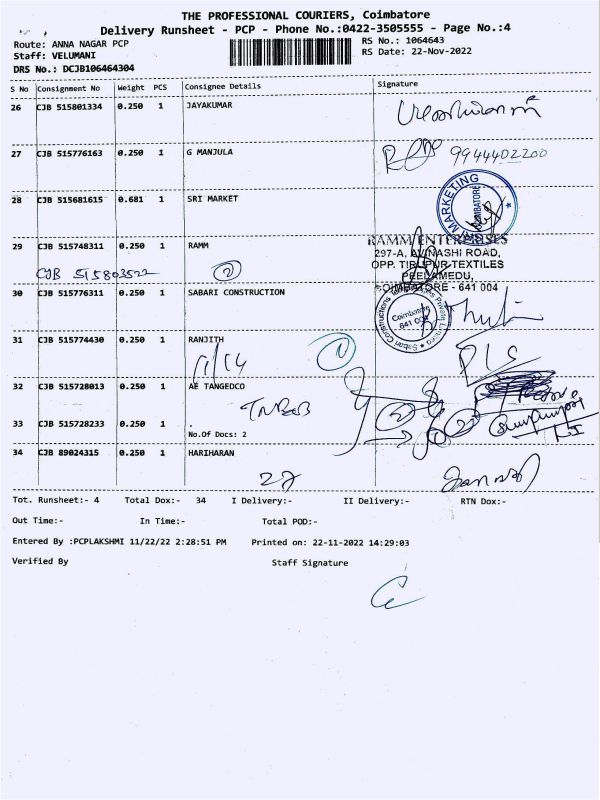 THE PROFESSIONAL COURIERS, Coimbatore
Delivery Runsheet - PCP - Phone No.:0422-3505555 - Page No.:4
Route: ANNA NAGAR PCP
RS No.: 1064643
Staff: VELUMANI
RS Date: 22-Nov-2022
DRS No.: DCJB106464304
S No Consignment No Weight PCS Consignee Details Signature
26 CJB 515801334 0.250 1 JAYAKUMAR
27 CJB 515776163 0.250 1 G MANJULA
9944402200
28 CJB 515681615 0.681 1 SRI MARKET
MARKETING
COIMBATORE
29 CJB 515748311 0.250 1 RAMM
CJB 515803522 2
RAMM ENTERPRISES
297-A, AVINASHI ROAD,
OPP. TIRUPUR TEXTILES
PEELAMEDU,
COIMBATORE - 641 004
30 CJB 515776311 0.250 1 SABARI CONSTRUCTION
Coimbatore
641 004
31 CJB 515774430 0.250 1 RANJITH
32 CJB 515728013 0.250 1 AE TANGEDCO
TNEB
33 CJB 515728233 0.250 1 .
No.Of Docs: 2
34 CJB 89024315 0.250 1 HARIHARAN
27
Tot. Runsheet:- 4 Total Dox:- 34 I Delivery:- II Delivery:- RTN Dox:-
Out Time:- In Time:- Total POD:-
Entered By :PCPLAKSHMI 11/22/22 2:28:51 PM Printed on: 22-11-2022 14:29:03
Verified By Staff Signature